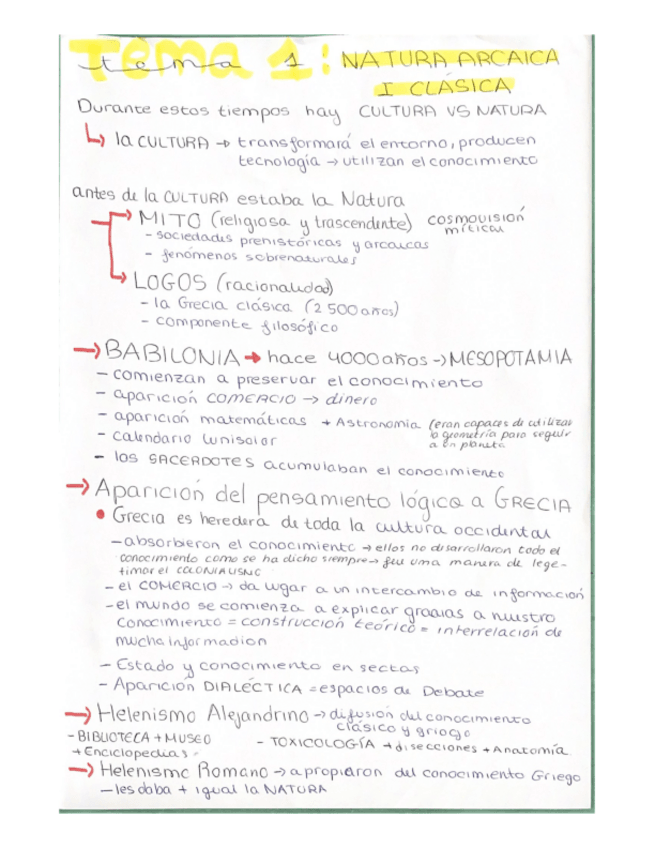 tema 1: NATURA ARCAICA
I CLÁSICA
Durante estos tiempos hay CULTURA VS NATURA
↳ la CULTURA → transformará el entorno, producen
tecnología → utilizan el conocimiento
antes de la CULTURA estaba la Natura
→ MITO (religiosa y trascendente) cosmovisión
míticas
- sociedades prehistóricas y arcaicas
- fenómenos sobrenaturales
→ LOGOS (racionalidad)
- la Grecia clásica (2 500 años)
- componente filosófico
→ BABILONIA → hace 4000 años → MESOPOTAMIA
- comienzan a preservar el conocimiento
- aparición COMERCIO → dinero
- aparición matemáticas + Astronomia (eran capaces de utilizar
la geometría para seguir
a un planeta
- calendario lunisolar
- los SACERDOTES acumulaban el conocimiento
→ Aparición del pensamiento lógico a GRECIA
• Grecia es heredera de toda la cultura occidental
- absorbieron el conocimiento → ellos no disarrollaron todo el
conocimiento como se ha dicho siempre → fue uma manera de lege-
timar el COLONIALISMO
- el COMERCIO → da lugar a un intercambio de información
- el mundo se comienza a explicar gracias a nuestro
conocimiento = construcción teórico = interrelación de
mucha informacion
- Estado y conocimiento en sectas
- Aparición DIALÉCTICA = espacios de Debate
→ Helenismo Alejandrino → difusión del conocimiento
clásico y griego
- BIBLIOTECA + MUSEO
+ Enciclopedias -
- TOXICOLOGÍA + disecciones + Anatomía
→ Helenismo Romano → apropiaron del conocimiento Griego
- les daba + igual la NATURA